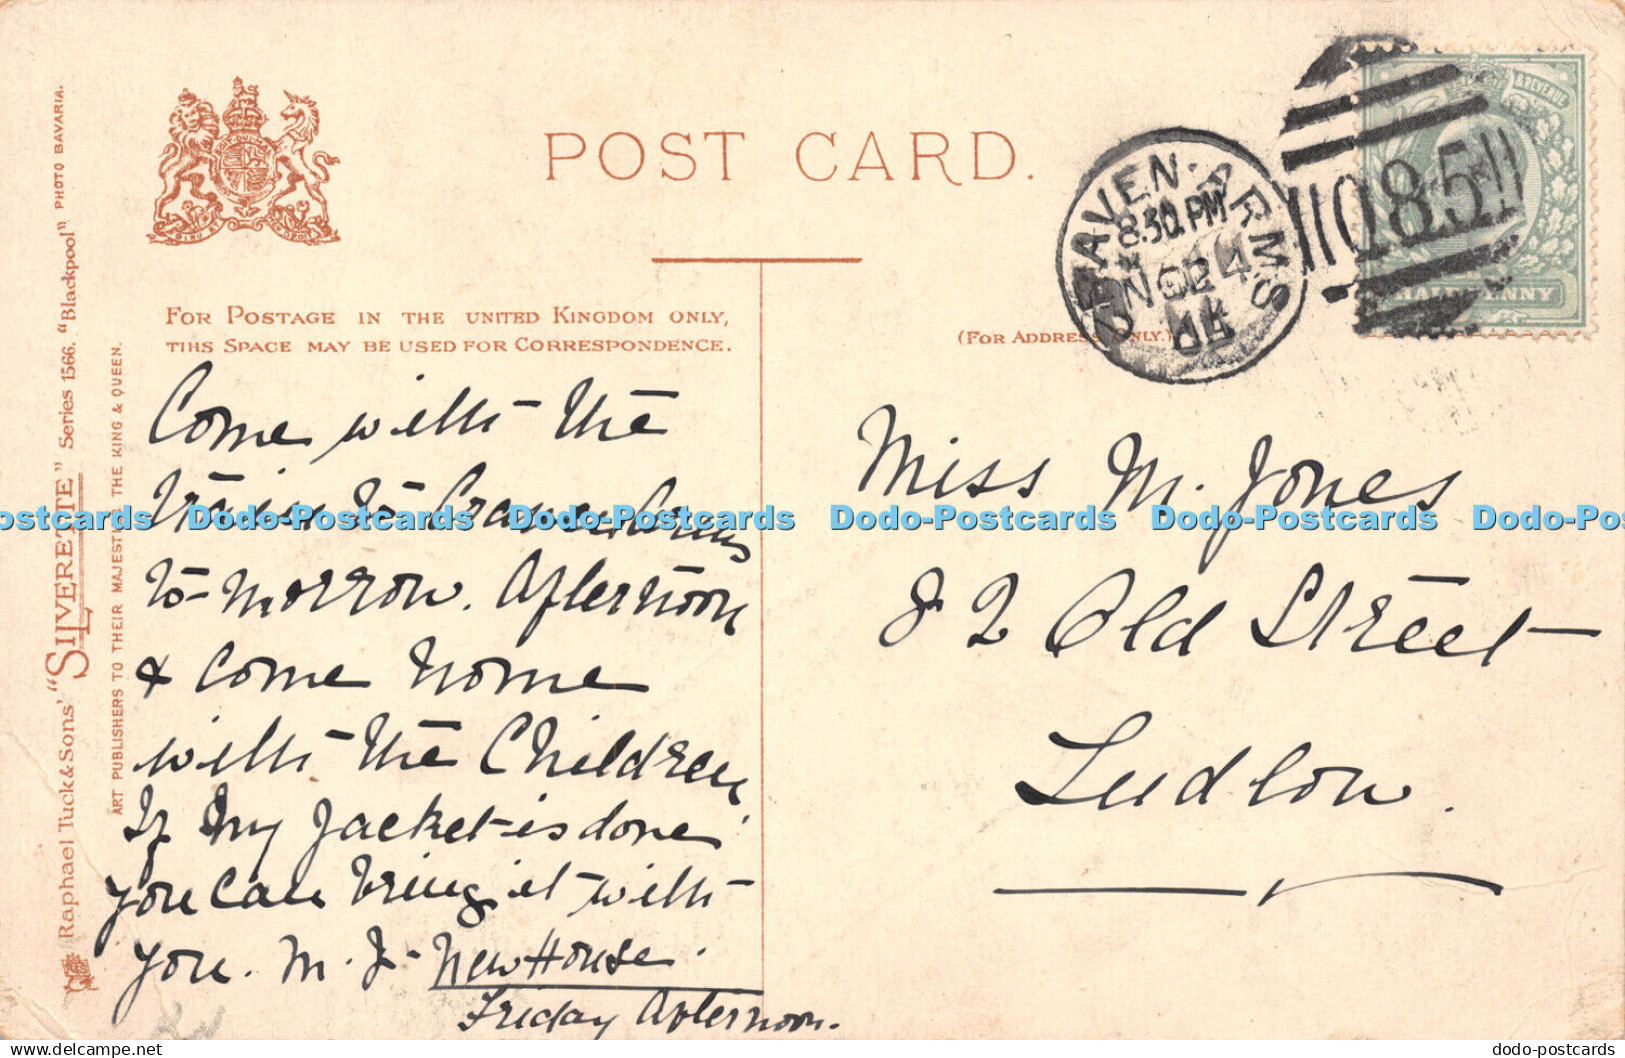 POST CARD.
FOR POSTAGE IN THE UNITED KINGDOM ONLY,
THIS SPACE MAY BE USED FOR CORRESPONDENCE.
(FOR ADDRESS ONLY.)
CRAVEN ARMS
8.30 PM
NO 24
085
& REVENUE
HALFPENNY
Come with the
Train to Cravenarms
to-morrow. Afternoon
& come home
with the Children
If my Jacket is done
you can bring it with
you. M. J. New House.
Friday Afternoon.
Miss M. Jones
82 Old Street
Ludlow.
Raphael Tuck & Sons' "SILVERETTE" Series 1566. "Blackpool" PHOTO BAVARIA.
ART PUBLISHERS TO THEIR MAJESTIES THE KING & QUEEN.
ostcards Dodo-Postcards Dodo-Postcards Dodo-Postcards Dodo-Postcards Dodo-Pos
dodo-postcards